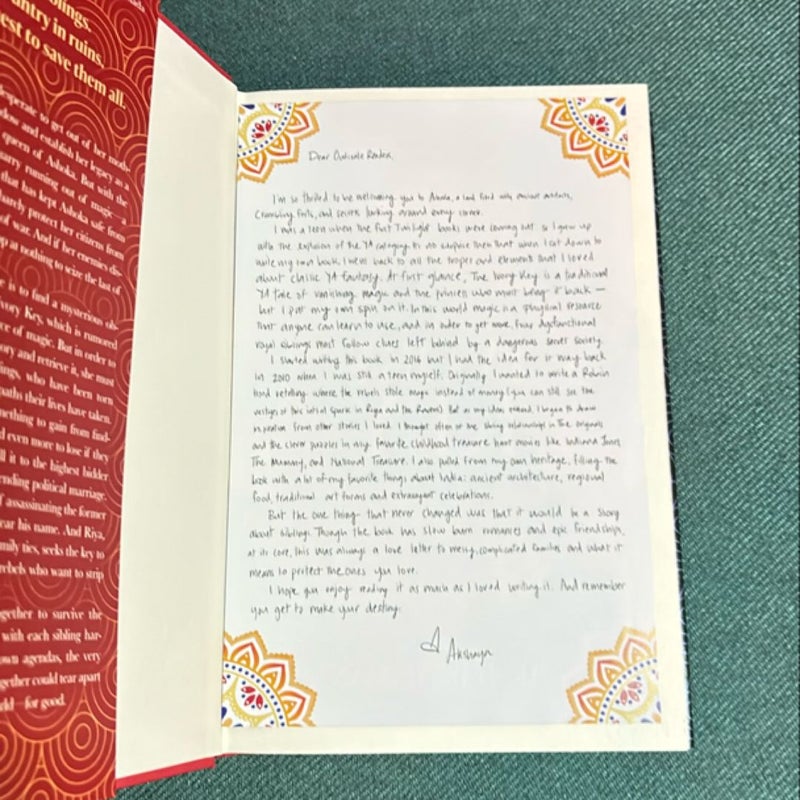 blings,
untry in ruins,
est to save them all.
esperate to get out of her moth-
dow and establish her legacy as a
queen of Ashoka. But with the
uarry running out of magic—a
that has kept Ashoka safe from
barely protect her citizens from
of war. And if her enemies dis-
op at nothing to seize the last of
e is to find a mysterious ob-
vory Key, which is rumored
ce of magic. But in order to
ory and retrieve it, she must
ings, who have been torn
paths their lives have taken.
mething to gain from find-
d even more to lose if they
ll it to the highest bidder
ending political marriage.
f assassinating the former
ear his name. And Riya,
mily ties, seeks the key to
rebels who want to strip
gether to survive the
with each sibling har-
own agendas, the very
gether could tear apart
ld—for good.
Dear Owlcrate Reader,
I'm so thrilled to be welcoming you to Ashoka, a land filled with ancient
crumbling forts, and secrets lurking around every corner.
I was a teen when the first Twilight books were coming out so I grew up
with the explosion of the YA category. It's no surprise then that when I sat down to
write my own book, I went back to all the tropes and elements that I loved
about classic YA fantasy. At first glance, The Ivory Key is a traditional
YA tale of vanishing magic and the princess who must bring it back—
but I put my own spin on it. In this world magic is a physical resource
that anyone can learn to use, and in order to get more, four dysfunctional
royal siblings must follow clues left behind by a dangerous secret society.
I started writing this book in 2016 but I had the idea for it way back
in 2010 when I was still a teen myself. Originally I wanted to write a Robin
Hood retelling where the rebels stole magic instead of money (you can still see the
vestiges of this initial spark in Riya and the Ravens). But as my idea evolved, I began to draw
inspiration from other stories I loved. I thought often of the sibling relationships in The Originals
and the clever puzzles in my favorite childhood treasure hunt movies like Indiana Jones,
The Mummy, and National Treasure. I also pulled from my own heritage, filling the
book with a lot of my favorite things about India: ancient architecture, regional
food, traditional art forms and extravagant celebrations.
But the one thing that never changed was that it would be a story
about siblings. Though the book has slow burn romances and epic friendships,
at its core, this was always a love letter to messy, complicated families and what it
means to protect the ones you love.
I hope you enjoy reading it as much as I loved writing it. And remember
you get to make your destiny.
♡ Akshaya